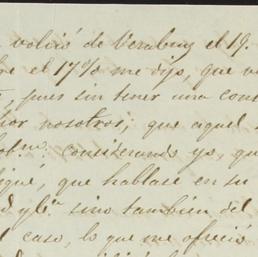 volvió de Veracruz el 19.
el 17% me dijo, que v
pues sin tener una cont
por nosotros; que aquel s
Considerando yo, qu
que, que hablase en su
sino tambien del
el caso, lo que me ofreció